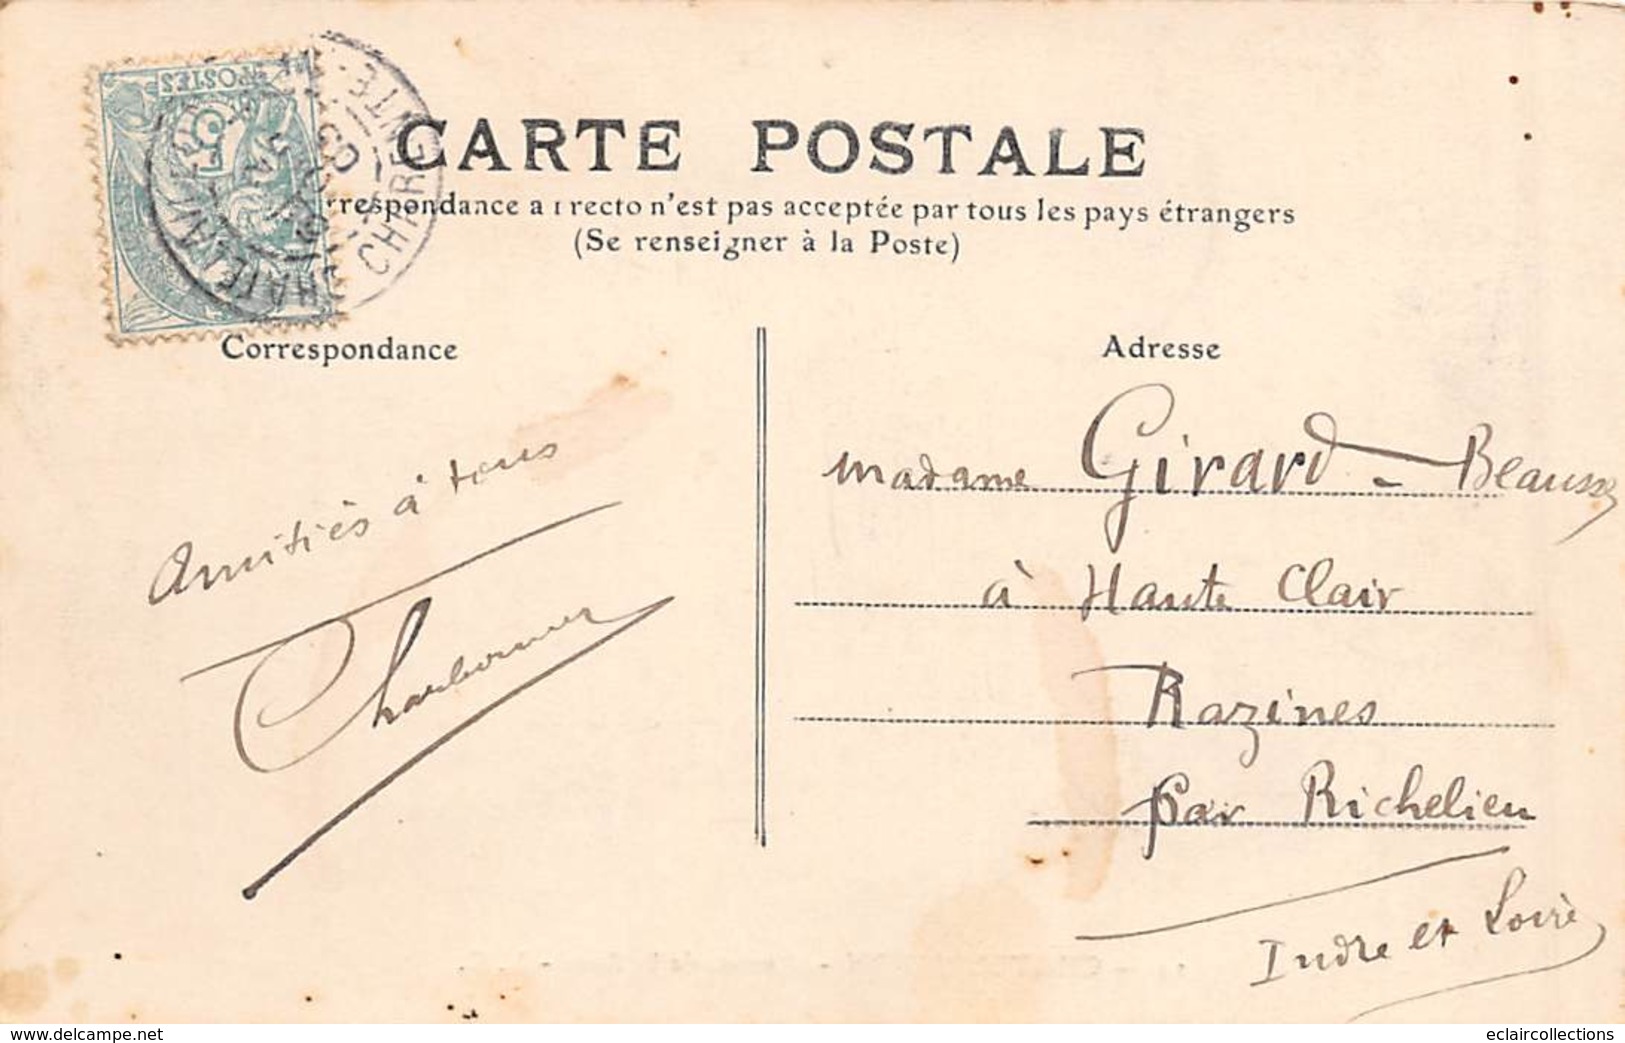 POSTES
5
CHATELAILLON
CHARENTE-INF
CARTE POSTALE
rrespondance au recto n'est pas acceptée par tous les pays étrangers
(Se renseigner à la Poste)
Correspondance
Adresse
Amitiés à tous
Charbonnier
madame Girard-Beausse
à Haute Clair
Razines
par Richelieu
Indre et Loire
www.delcampe.net
eclaircollections